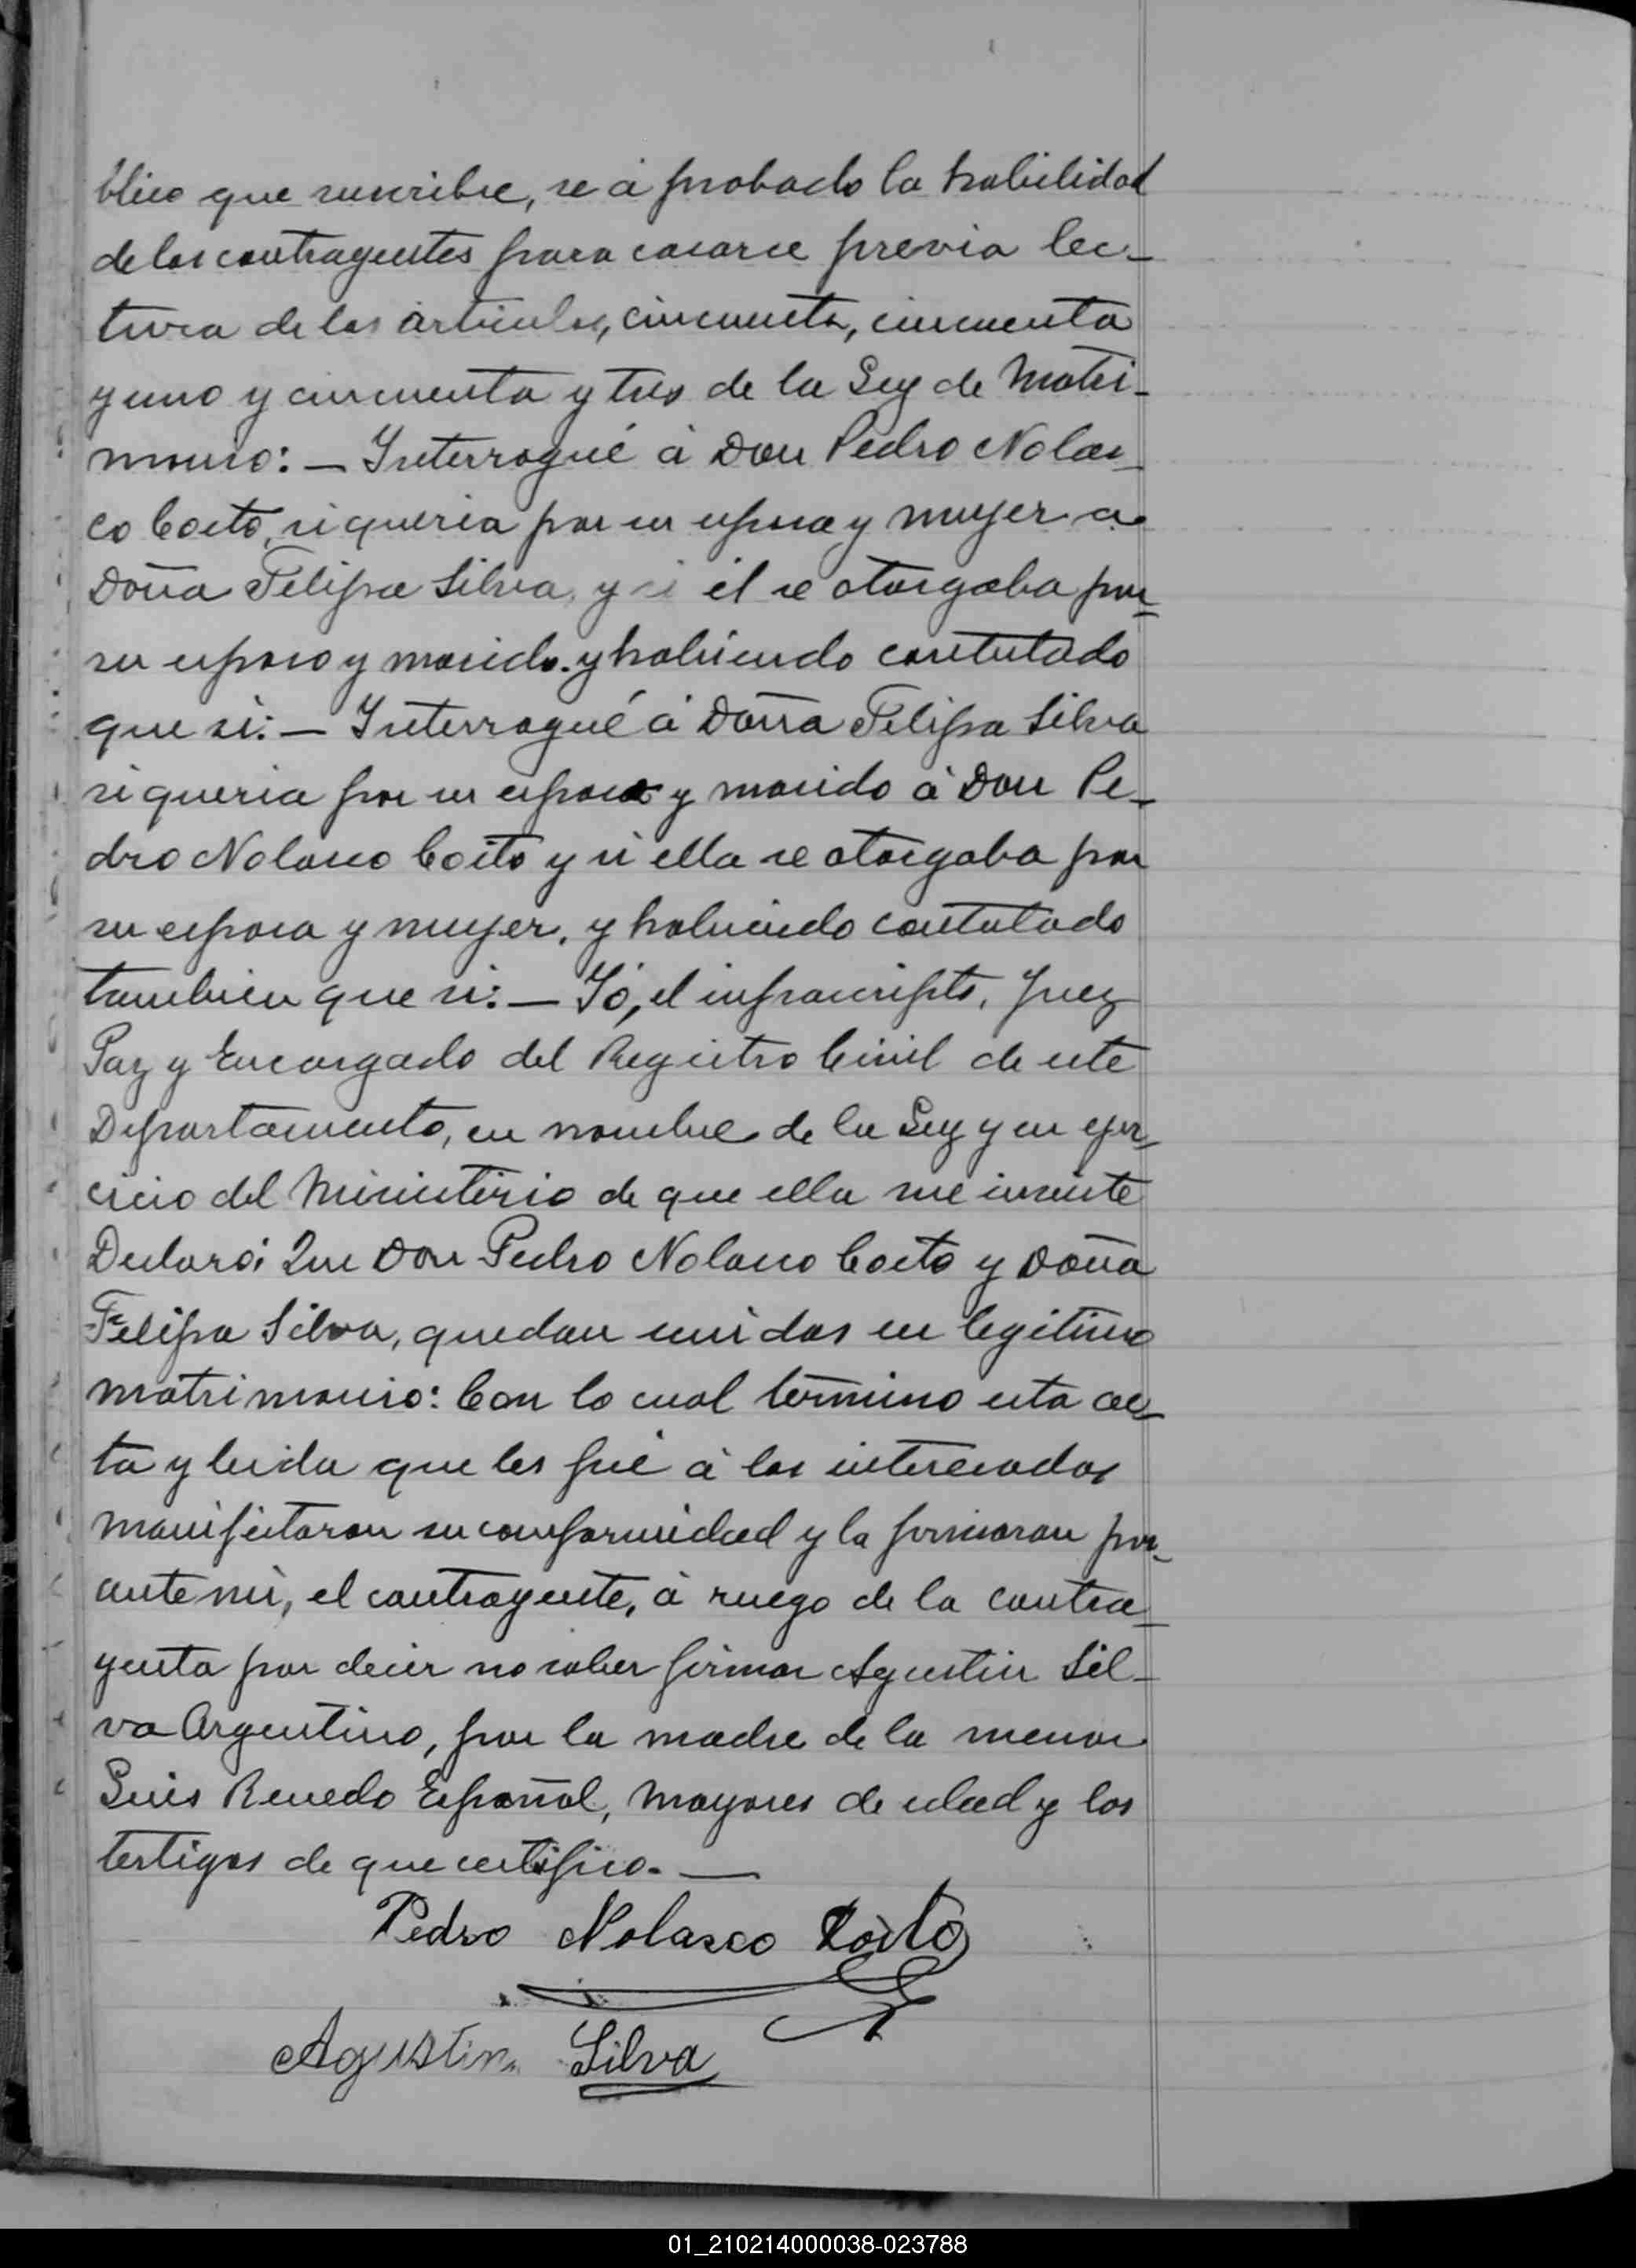 blico que suscribe, se á probado la habilidad
de los contrayentes para casarse previa lec-
tura de los articulos, cincuenta, cincuenta
y uno y cincuenta y tres de la Ley de Matri-
monio: — Interrogué á Don Pedro Nolas-
co Coito, si queria por su esposa y mujer a
Doña Felipa Silva, y si él se otorgaba por
su esposo y marido. y habiendo contestado
que si: — Interrogué á Doña Felipa Silva
si queria por su esposo y marido á Don Pe-
dro Nolasco Coito y si ella se otorgaba por
su esposa y mujer, y habiendo contestado
tambien que si: — Yó, el infrascripto, Juez
Paz y Encargado del Registro Civil de este
Departamento, en nombre de la Ley y en ejer-
cicio del Ministerio de que ella me inviste
Declaro: Que Don Pedro Nolasco Coito y Doña
Felipa Silva, quedan unidos en legitimo
matrimonio: Con lo cual término esta ac-
ta y leida que les fué á los interesados
manifestaron su conformidad y la firmaron por
ante mi, el contrayente, á ruego de la contra-
yenta por decir no saber firmar Agustin Sil-
va Argentino, por la madre de la menor
Luis Renedo Español, mayores de edad y los
testigos de que certifico. —
Pedro Nolasco Coito
Agustin Silva
01_210214000038-023788